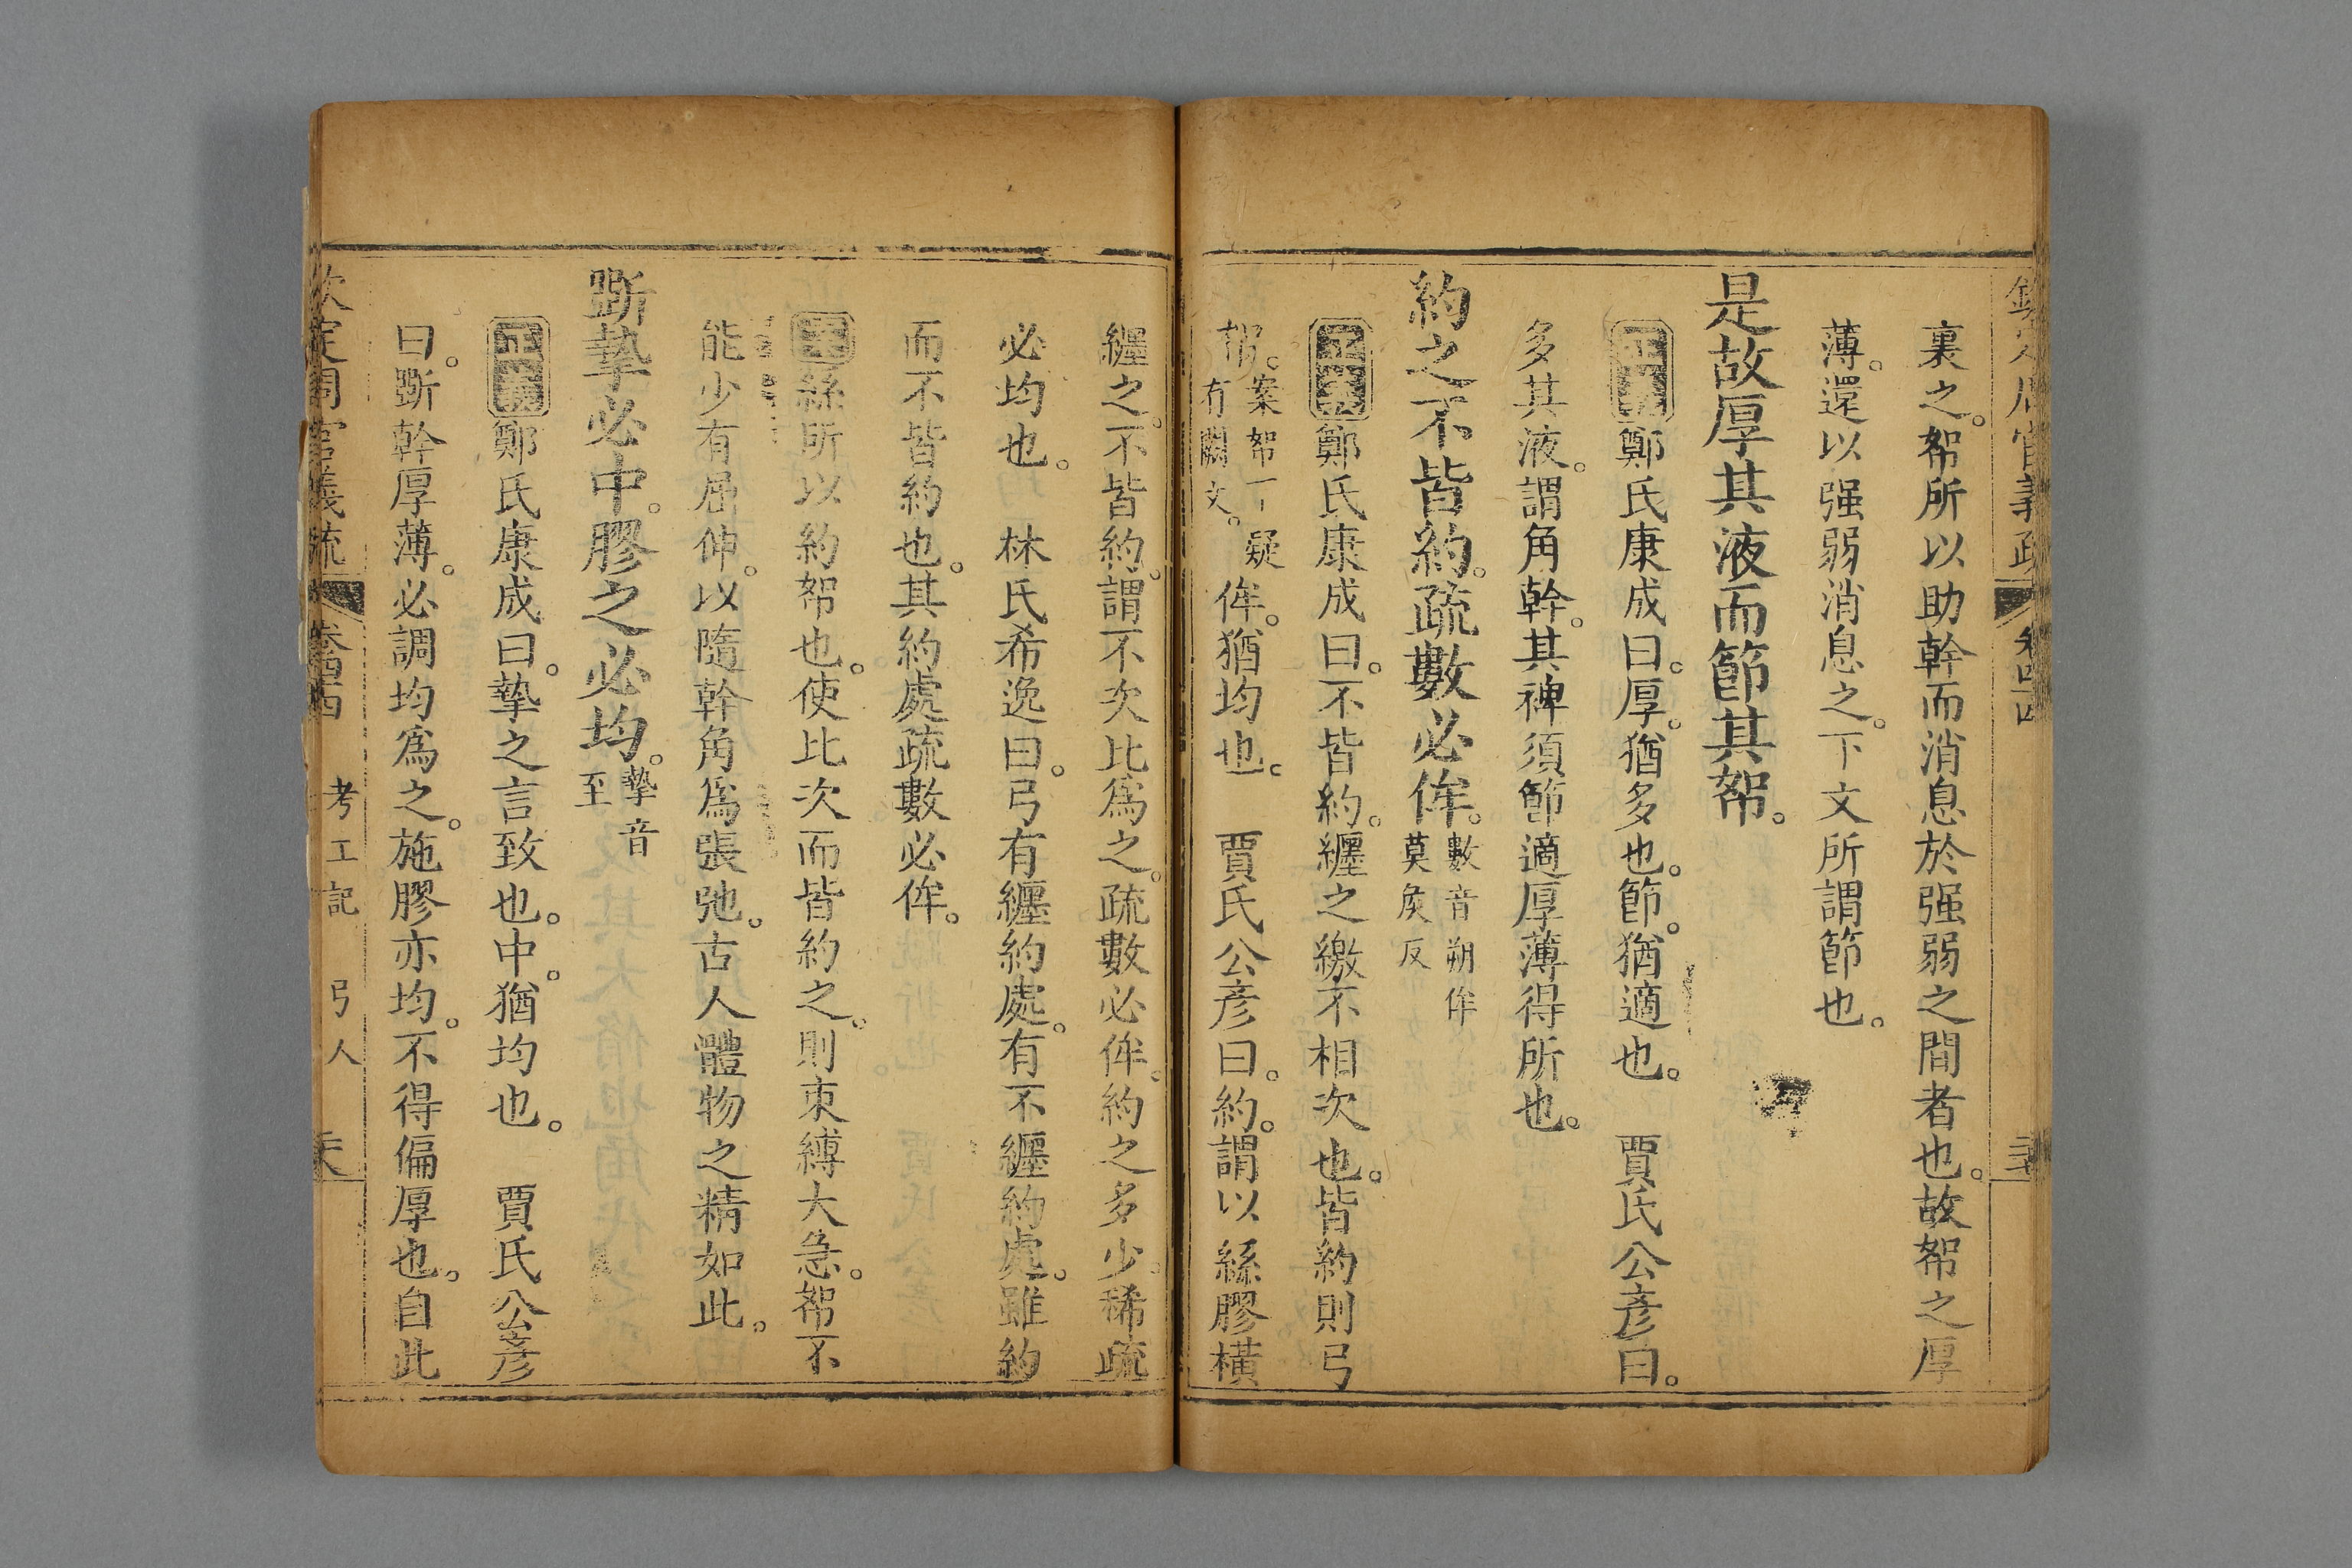 裏之。帤所以助幹而消息於强弱之間者也。故帤之厚
薄。還以强弱消息之。下文所謂節也。
是故厚其液而節其帤。
正義鄭氏康成曰。厚。猶多也。節。猶適也。 賈氏公彥曰。
多其液。謂角幹。其裨須節適厚薄得所也。
約之不皆約。疏數必侔。數音朔侔莫矦反
正義鄭氏康成曰。不皆約。纒之繳不相次也。皆約則弓
帤。案帤下疑有闕文。侔。猶均也。 賈氏公彥曰。約。謂以絲膠橫
纒之。不皆約。謂不次比爲之。疏數必侔。約之多少。稀疏
必均也。 林氏希逸曰。弓有纒約處。有不纒約處。雖約
而不皆約也。其約處疏數必侔。
絲所以約帤也。使比次而皆約之。則束縛大急。帤不
能少有屈伸。以隨幹角爲張弛。古人體物之精如此。
斲摯必中。膠之必均。摯音至
正義鄭氏康成曰。摯之言致也。中。猶均也。 賈氏公彥
曰。斲幹厚薄。必調均爲之。施膠亦均。不得偏厚也。自此
欽定周官義疏 卷四四 考工記 弓人